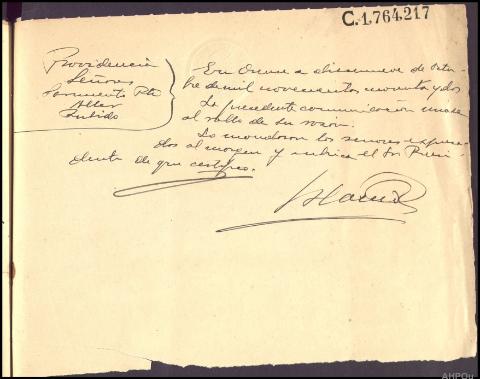 C.1,764,217
Providencia
Señores
Sarmiento Pte
Aller
Pulido
En Orense a diecinueve de Octu-
bre de mil novecientos noventa y dos
La precedente comunicación unase
al rollo de su razón.
Lo mandaron los señores expresa-
dos al margen y rubrica el Sr. Presi-
dente de que certifico.
AHPOu